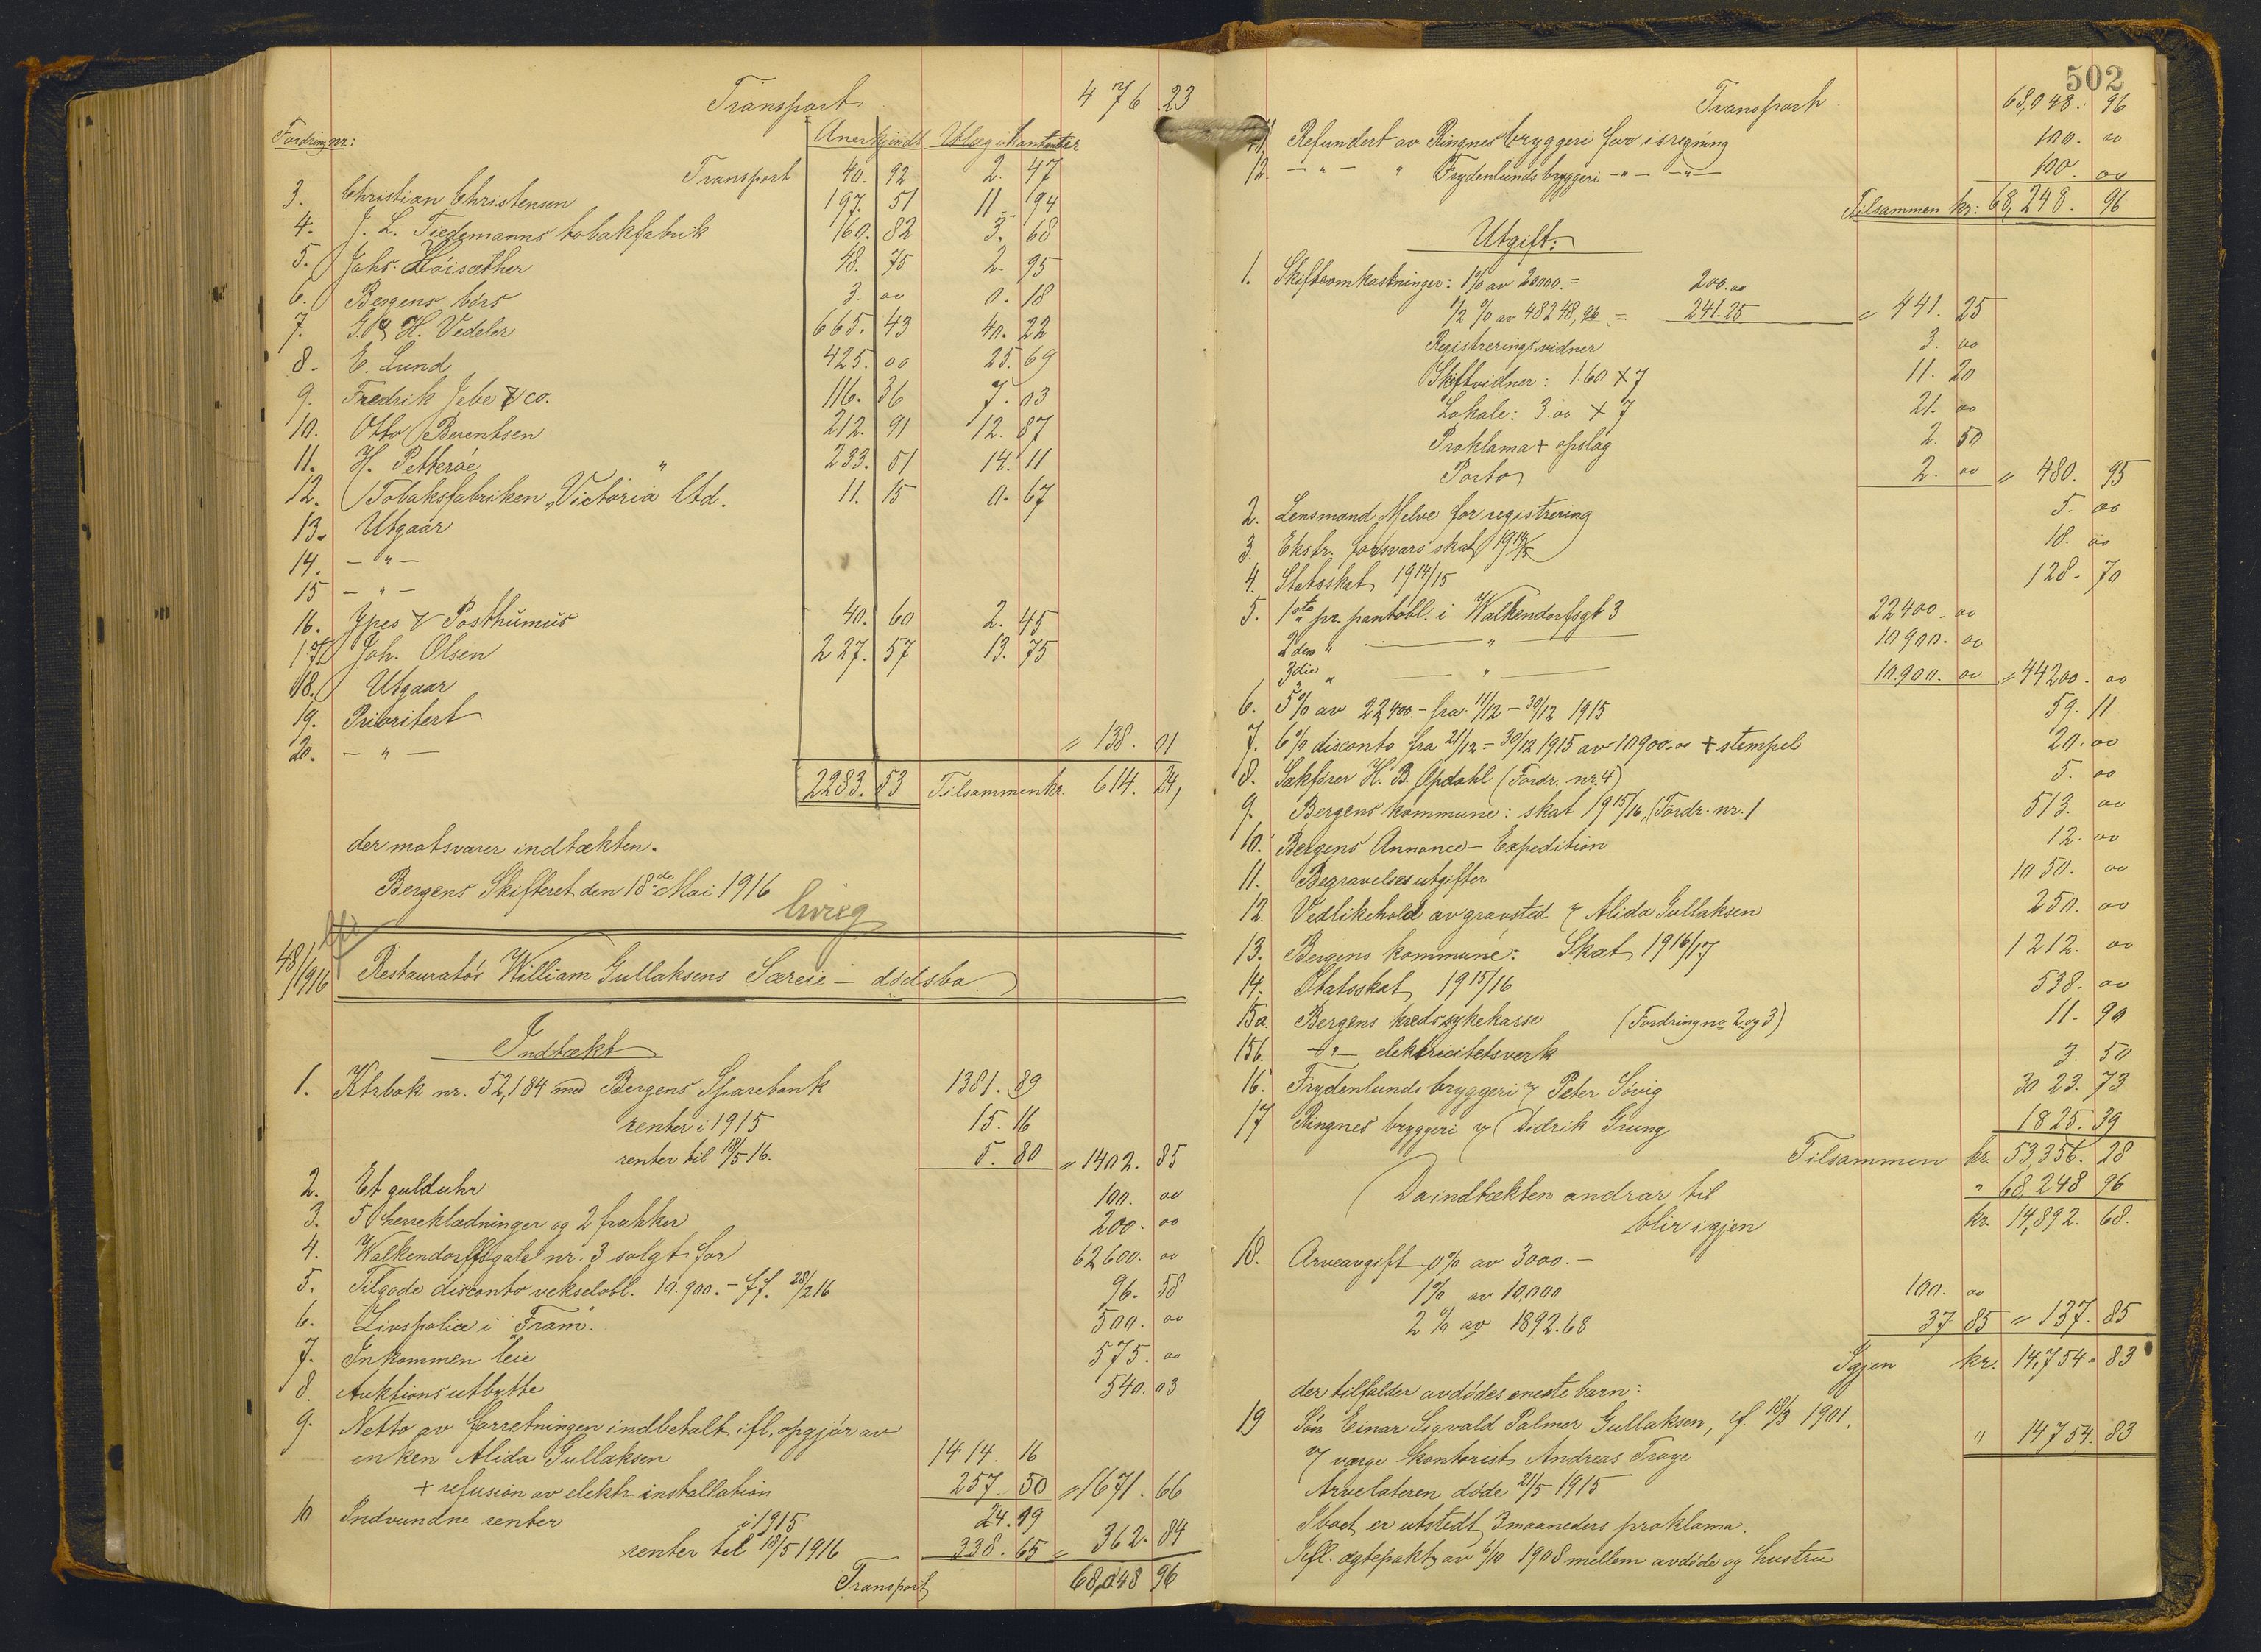 Transport 476 23
Fordring nr.: Anerkjendt Utlæg i kontanter
Transport 40. 92 2. 47
3. Christian Christensen 197. 51 11. 94
4. J. L. Tiedemanns tobakfabrik 160. 82 3. 68
5. Johs. Höisæther 48. 75 2. 95
6. Bergens börs 3. 00 0. 18
7. G. & H. Vedeler 665. 43 40. 22
8. E. Lund 425. 00 25. 69
9. Fredrik Jebe & co. 116. 36 7. 03
10. Otto Berentsen 212. 91 12. 87
11. H. Petteröe 233. 51 14. 11
12. Tobaksfabriken „Victoria" Ltd. 11. 15 0. 67
13. Utgaar
14. — " —
15 — " —
16. Ypes & Posthumus 40. 60 2. 45
17. Joh. Olsen 227. 57 13. 75
18. Utgaar
19. Prioritert
20. — " — = 138. 01
2283. 53 Tilsammen kr. 614. 24,
der motsvarer indtækten.
Bergens Skifteret den 18de Mai 1916
48/1916 Restauratör William Gullaksens Særeie - dödsbo.
Indtækt
1. Ktrbok nr. 52,184 med Bergens Sparebank 1381. 89
renter i 1915 15. 16
renter til 18/5 16. 5. 80 = 1402. 85
2. Et gulduhr 100. 00
3. 5 herreklædninger og 2 frakker 200. 00
4. Walkendorffsgate nr. 3 solgt for 62600. 00
5. Tilgode disconto vekselobl. 10.900.- ff. 28/2 16 96. 58
6. Livspolice i „Fram". 500. 00
7. Inkommen leie 575. 00
8. Auktionsutbytte 540. 03
9. Netto av forretningen indbetalt ifl. opgjör av
enken Alida Gullaksen 1414. 16
+ refusion av elektr. installation 257. 50 = 1671. 66
10 Indvundne renter i 1915 24. 19
renter til 18/5 1916 338. 65 = 362. 84
Transport 68,048 96
502
Transport 68,048. 96
11. Refundert av Ringnes bryggeri for isregning 100. 00
12. — " — " Frydenlunds bryggeri — " — — " — 100. 00
Tilsammen kr: 68,248. 96
Utgift:
1. Skifteomkostninger: 1% av 20000. = 200.00
1/2 % av 48248,96 = 241.25 = 441. 25
Registreringsvidner 3. 00
Skiftvidner: 1.60 × 7 11. 20
Lokale: 3.00 × 7 21. 00
Proklama + opslag 2. 50
Porto 2. 00 = 480. 95
2. Lensmand Melve for registrering 5. 00
3. Ekstr. forsvarsskat 1914/15 18. 00
4. Statsskat 1914/15 128. 70
5. 1ste pr. pantobl. i Walkendorfsgt 3 22400. 00
2den " — " — 10900. 00
3die " — " — 10.900. 00 = 44200. 00
6. 5% av 22,400.- fra 11/12 - 30/12 1915 59. 11
7. 6% disconto fra 21/12 - 30/12 1915 av 10900.00 + stempel 20. 00
8. Sakförer H. B. Opdahl (Fordr. nr. 4) 5. 00
9. Bergens kommune: skat 1915/16, (Fordr. nr. 1 513. 00
10. Bergens Annonce - Expedition 12. 00
11. Begravelsesutgifter 1050. 00
12. Vedlikehold av gravsted v/ Alida Gullaksen 250. 00
13. Bergens kommune: Skat 1916/17 1212. 00
14. Statsskat 1915/16 538. 00
15a. Bergens kredssykekasse (Fordring nr. 2 og 3) 11. 90
15b. — " — elektricitetsverk 3. 50
16. Frydenlunds bryggeri v/ Peter Sövig 3023. 73
17 Ringnes bryggeri v/ Didrik Grung 1825. 39
Tilsammen kr. 53,356. 28
Da indtækten andrar til " 68,248 96
blir igjen kr. 14,892. 68.
18. Arveavgift 0% av 3000.-
1% av 10,000 100. 00
2% av 1892.68 37 85 = 137. 85
Igjen kr. 14,754. 83
der tilfalder avdödes eneste barn:
19 Sön Einar Sigvald Palmer Gullaksen, f. 18/3 1901. " 14754. 83
v/ værge kontorist Andreas Trage
Arvelateren döde 21/5 1915
I boet er utstedt 3 maaneders proklama.
Ifl. ægtepakt av 6/10 1908 mellem avdöde og hustru